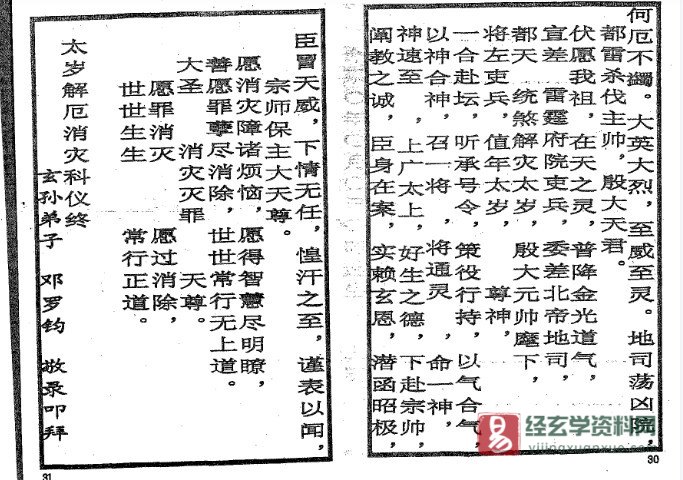 何厄不蠲。大英大烈，至威至灵。地司荡凶院，
都雷杀伐主帅，殷大天君。
伏愿我祖，在天之灵，普降金光道气，
宣差 雷霆府院吏兵，委差北帝地司，
都天 统煞解灾太岁，殷大元帅麾下，
将左吏兵，值年太岁， 尊神，
一合赴坛，听承号令，策役行持，以气合气，
以神合神，召一将，将通灵，命一神，
神速至 上广太上，好生之德，下赴宗帅，
阐教之诚，臣身在案，实赖玄恩，潜函昭极，
30
臣冒天威，下情无任，惶汗之至，谨表以闻，
宗师保主大天尊。
愿消灾障诸烦恼，愿得智慧尽明瞭，
善愿罪孽尽消除，世世常行无上道。
大圣 消灾灭罪 天尊。
愿罪消灭 愿过消除，
世世生生 常行正道。
太岁解厄消灾科仪终
玄孙弟子 邓罗钧 敬录叩拜
31
易 经玄学资料网
yijingxuanxue.net